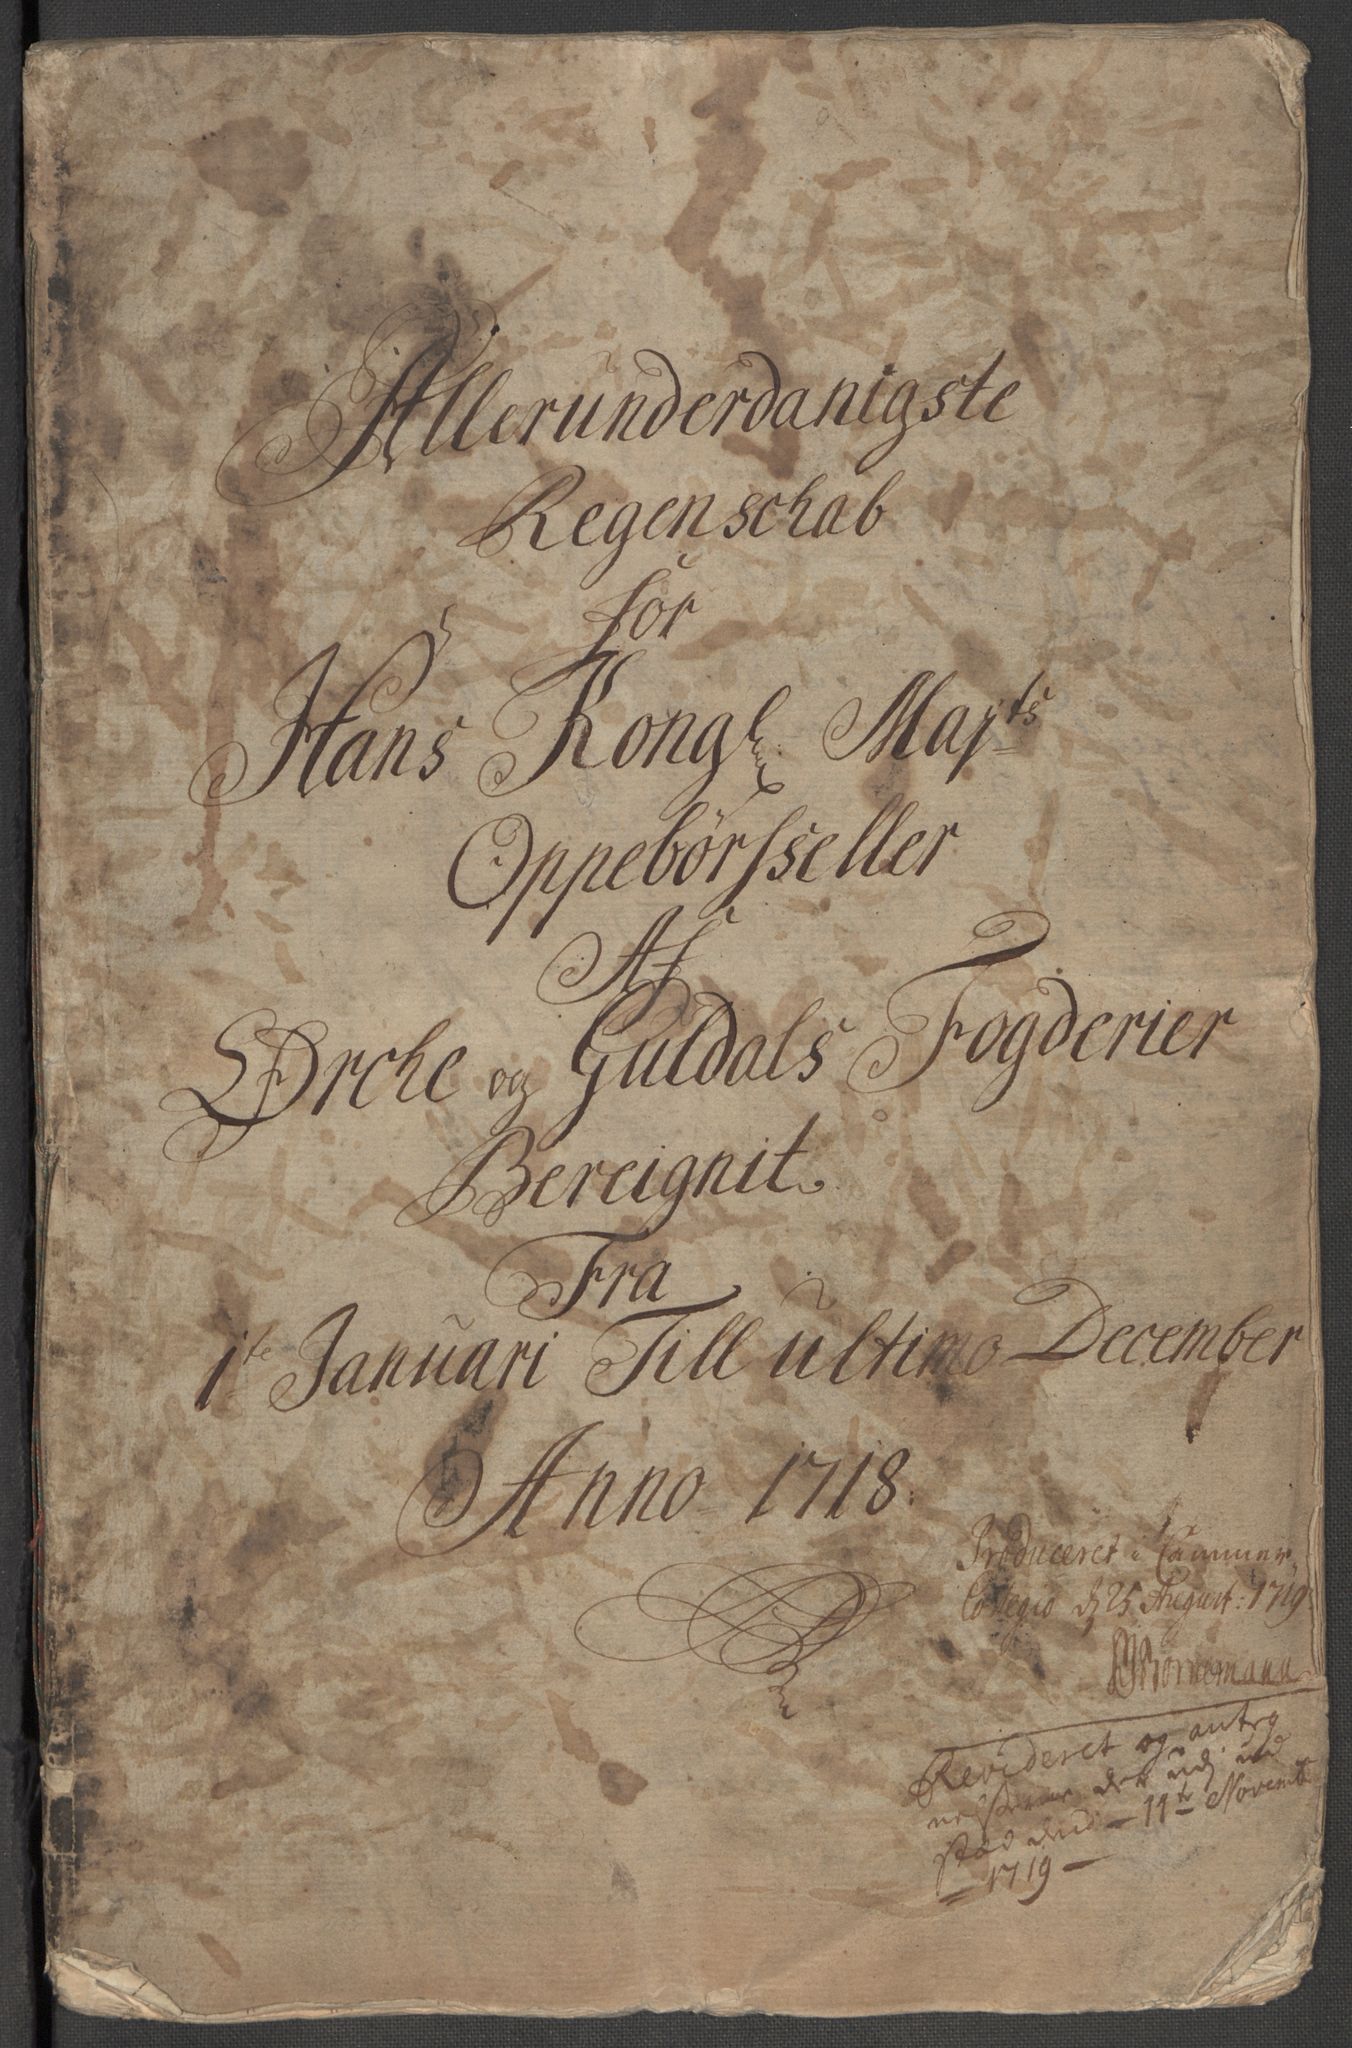 Allerunderdanigste
Regenschab
for
Hans Kongl. Majts
Oppebörsseller
Af
Ørche og Guldals Fogderier
Bereignit
Fra
1te Januari Till ultimo December
Anno 1718
Produceret i Cammer
Collegio d 25 August: 1719
Bornemann
Revideret og anteg
nelserne der udj ud
stæd dend 11te Novemb
1719